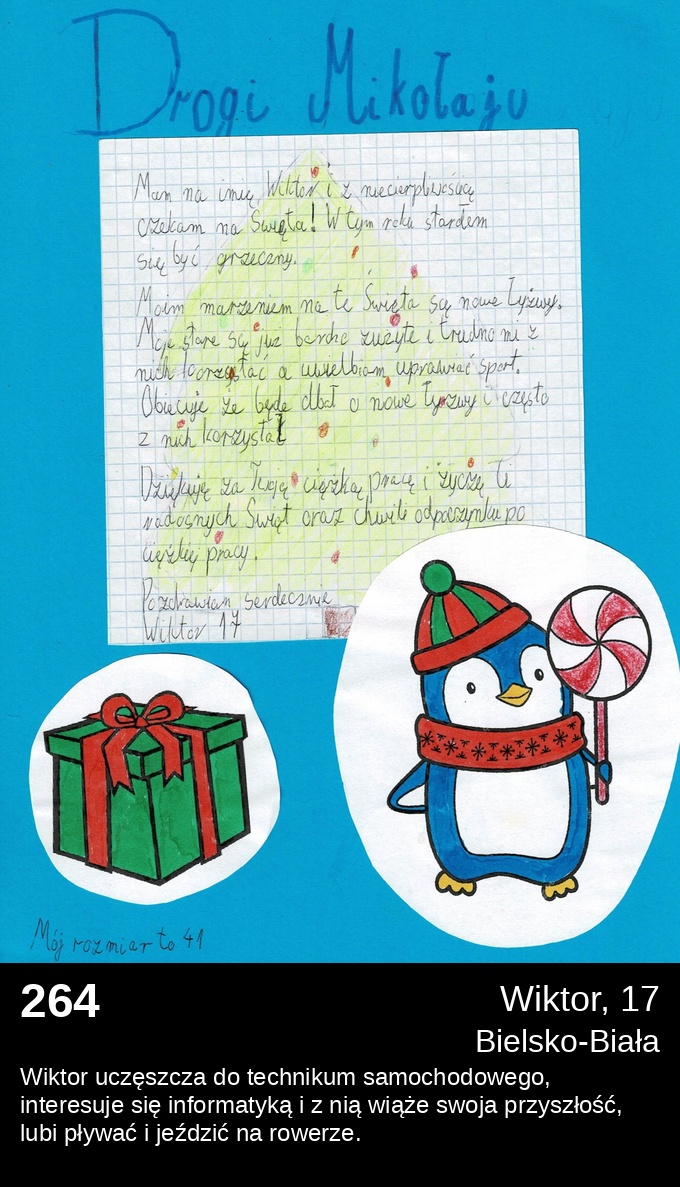 Drogi Mikołaju
Mam na imię Wiktor i z niecierpliwością
czekam na Święta! W tym roku starałem
się być grzeczny.
Moim marzeniem na te Święta są nowe łyżwy.
Moje stare są już bardzo zużyte i trudno mi z
nich korzystać a uwielbiam uprawiać sport.
Obiecuję że będę dbał o nowe łyżwy i często
z nich korzystał
Dziękuję za Twoją ciężką pracę i życzę Ci
radosnych Świąt oraz chwili odpoczynku po
ciężkiej pracy.
Pozdrawiam serdecznie
Wiktor 17
Mój rozmiar to 41
264
Wiktor, 17
Bielsko-Biała
Wiktor uczęszcza do technikum samochodowego,
interesuje się informatyką i z nią wiąże swoja przyszłość,
lubi pływać i jeździć na rowerze.